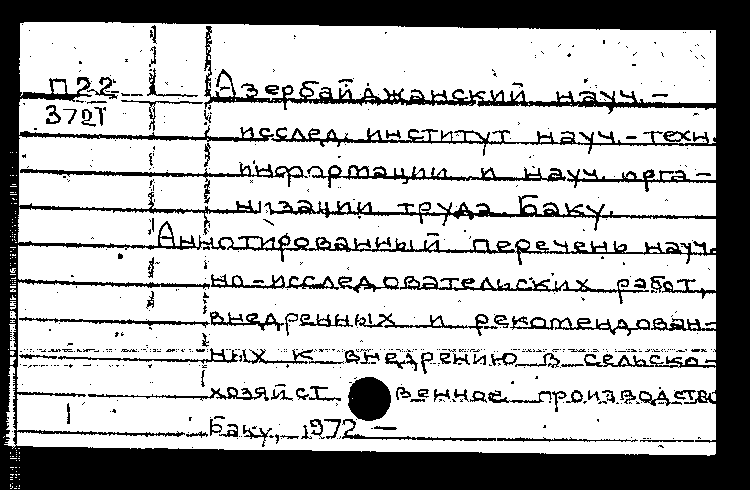 П22
372Т
Азербайджанский науч.-
исслед. институт науч.-техн.
информации и науч. орга-
низации труда Баку.
Аннотированный перечень науч-
но-исследовательских работ,
внедренных и рекомендован-
ных к внедрению в сельско-
хозяйственное производство
Баку, 1972 —
1